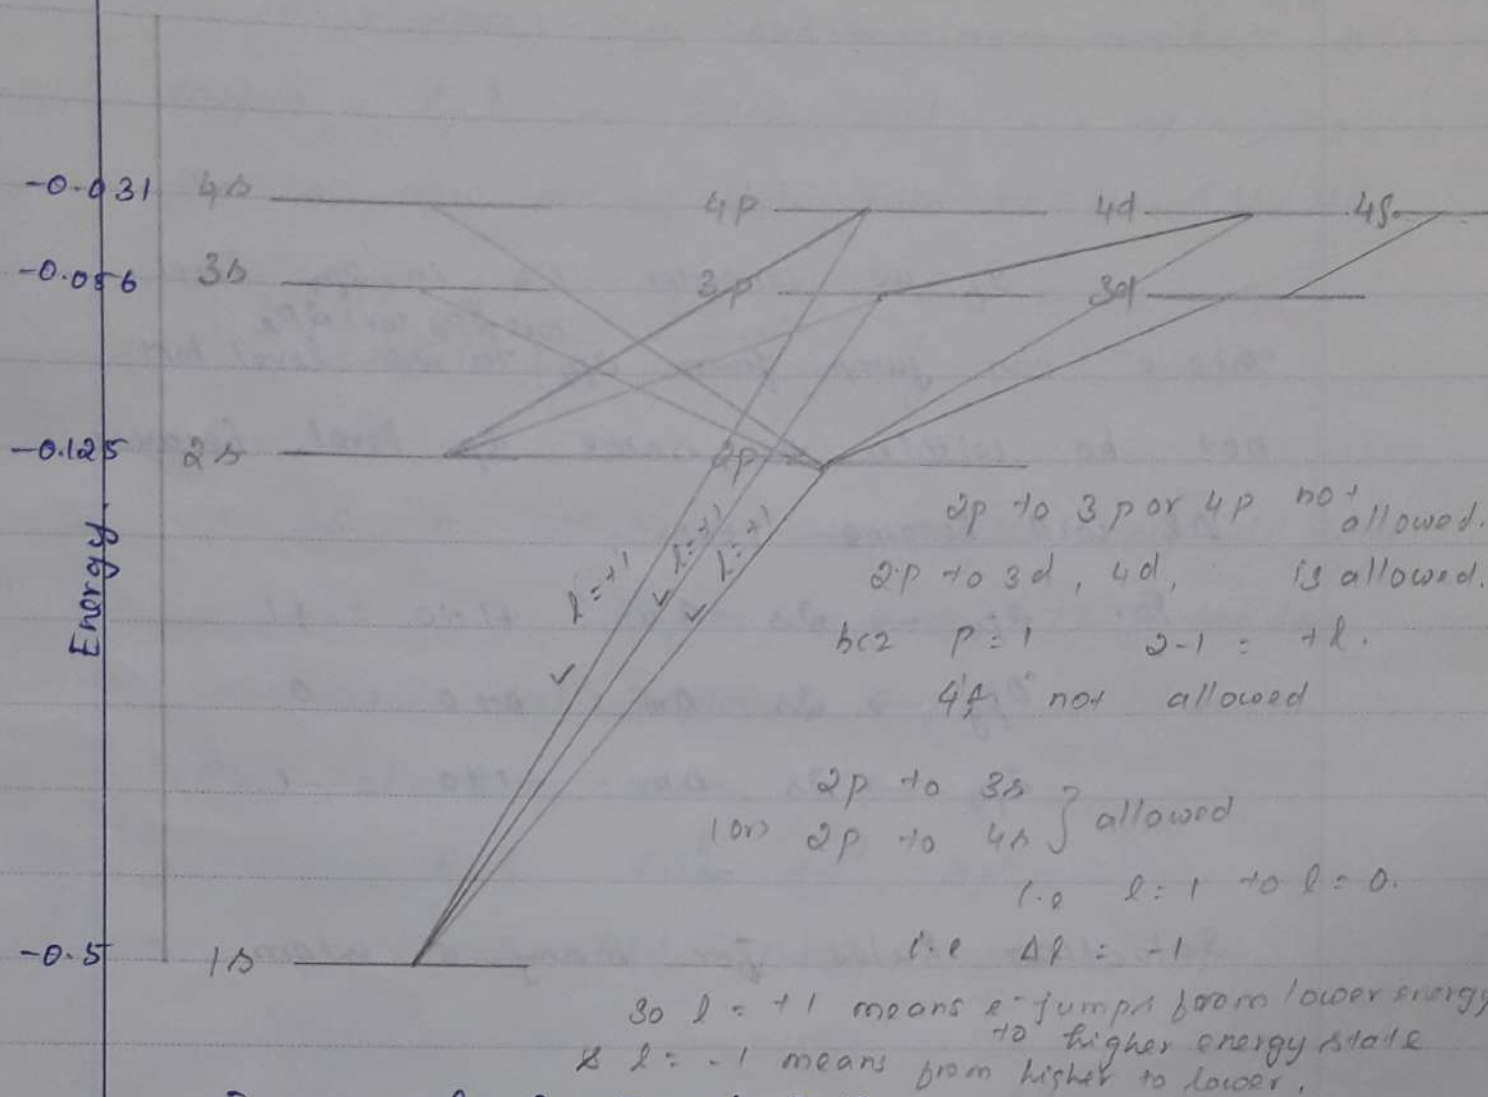 -0.031 4s 4p 4d 4f
-0.056 3s 3p 3d
-0.125 2s 2p
Energy
l=+1
l=+1
l=+1
2p to 3p or 4p not allowed.
2p to 3d, 4d, is allowed.
bcz p=1 2-1 = +1.
4f not allowed
2p to 3s
(or) 2p to 4s } allowed
i.e l=1 to l=0.
-0.5 1s i.e Δl = -1
so l = +1 means e- jumps from lower energy
to higher energy state
& l = -1 means from higher to lower.